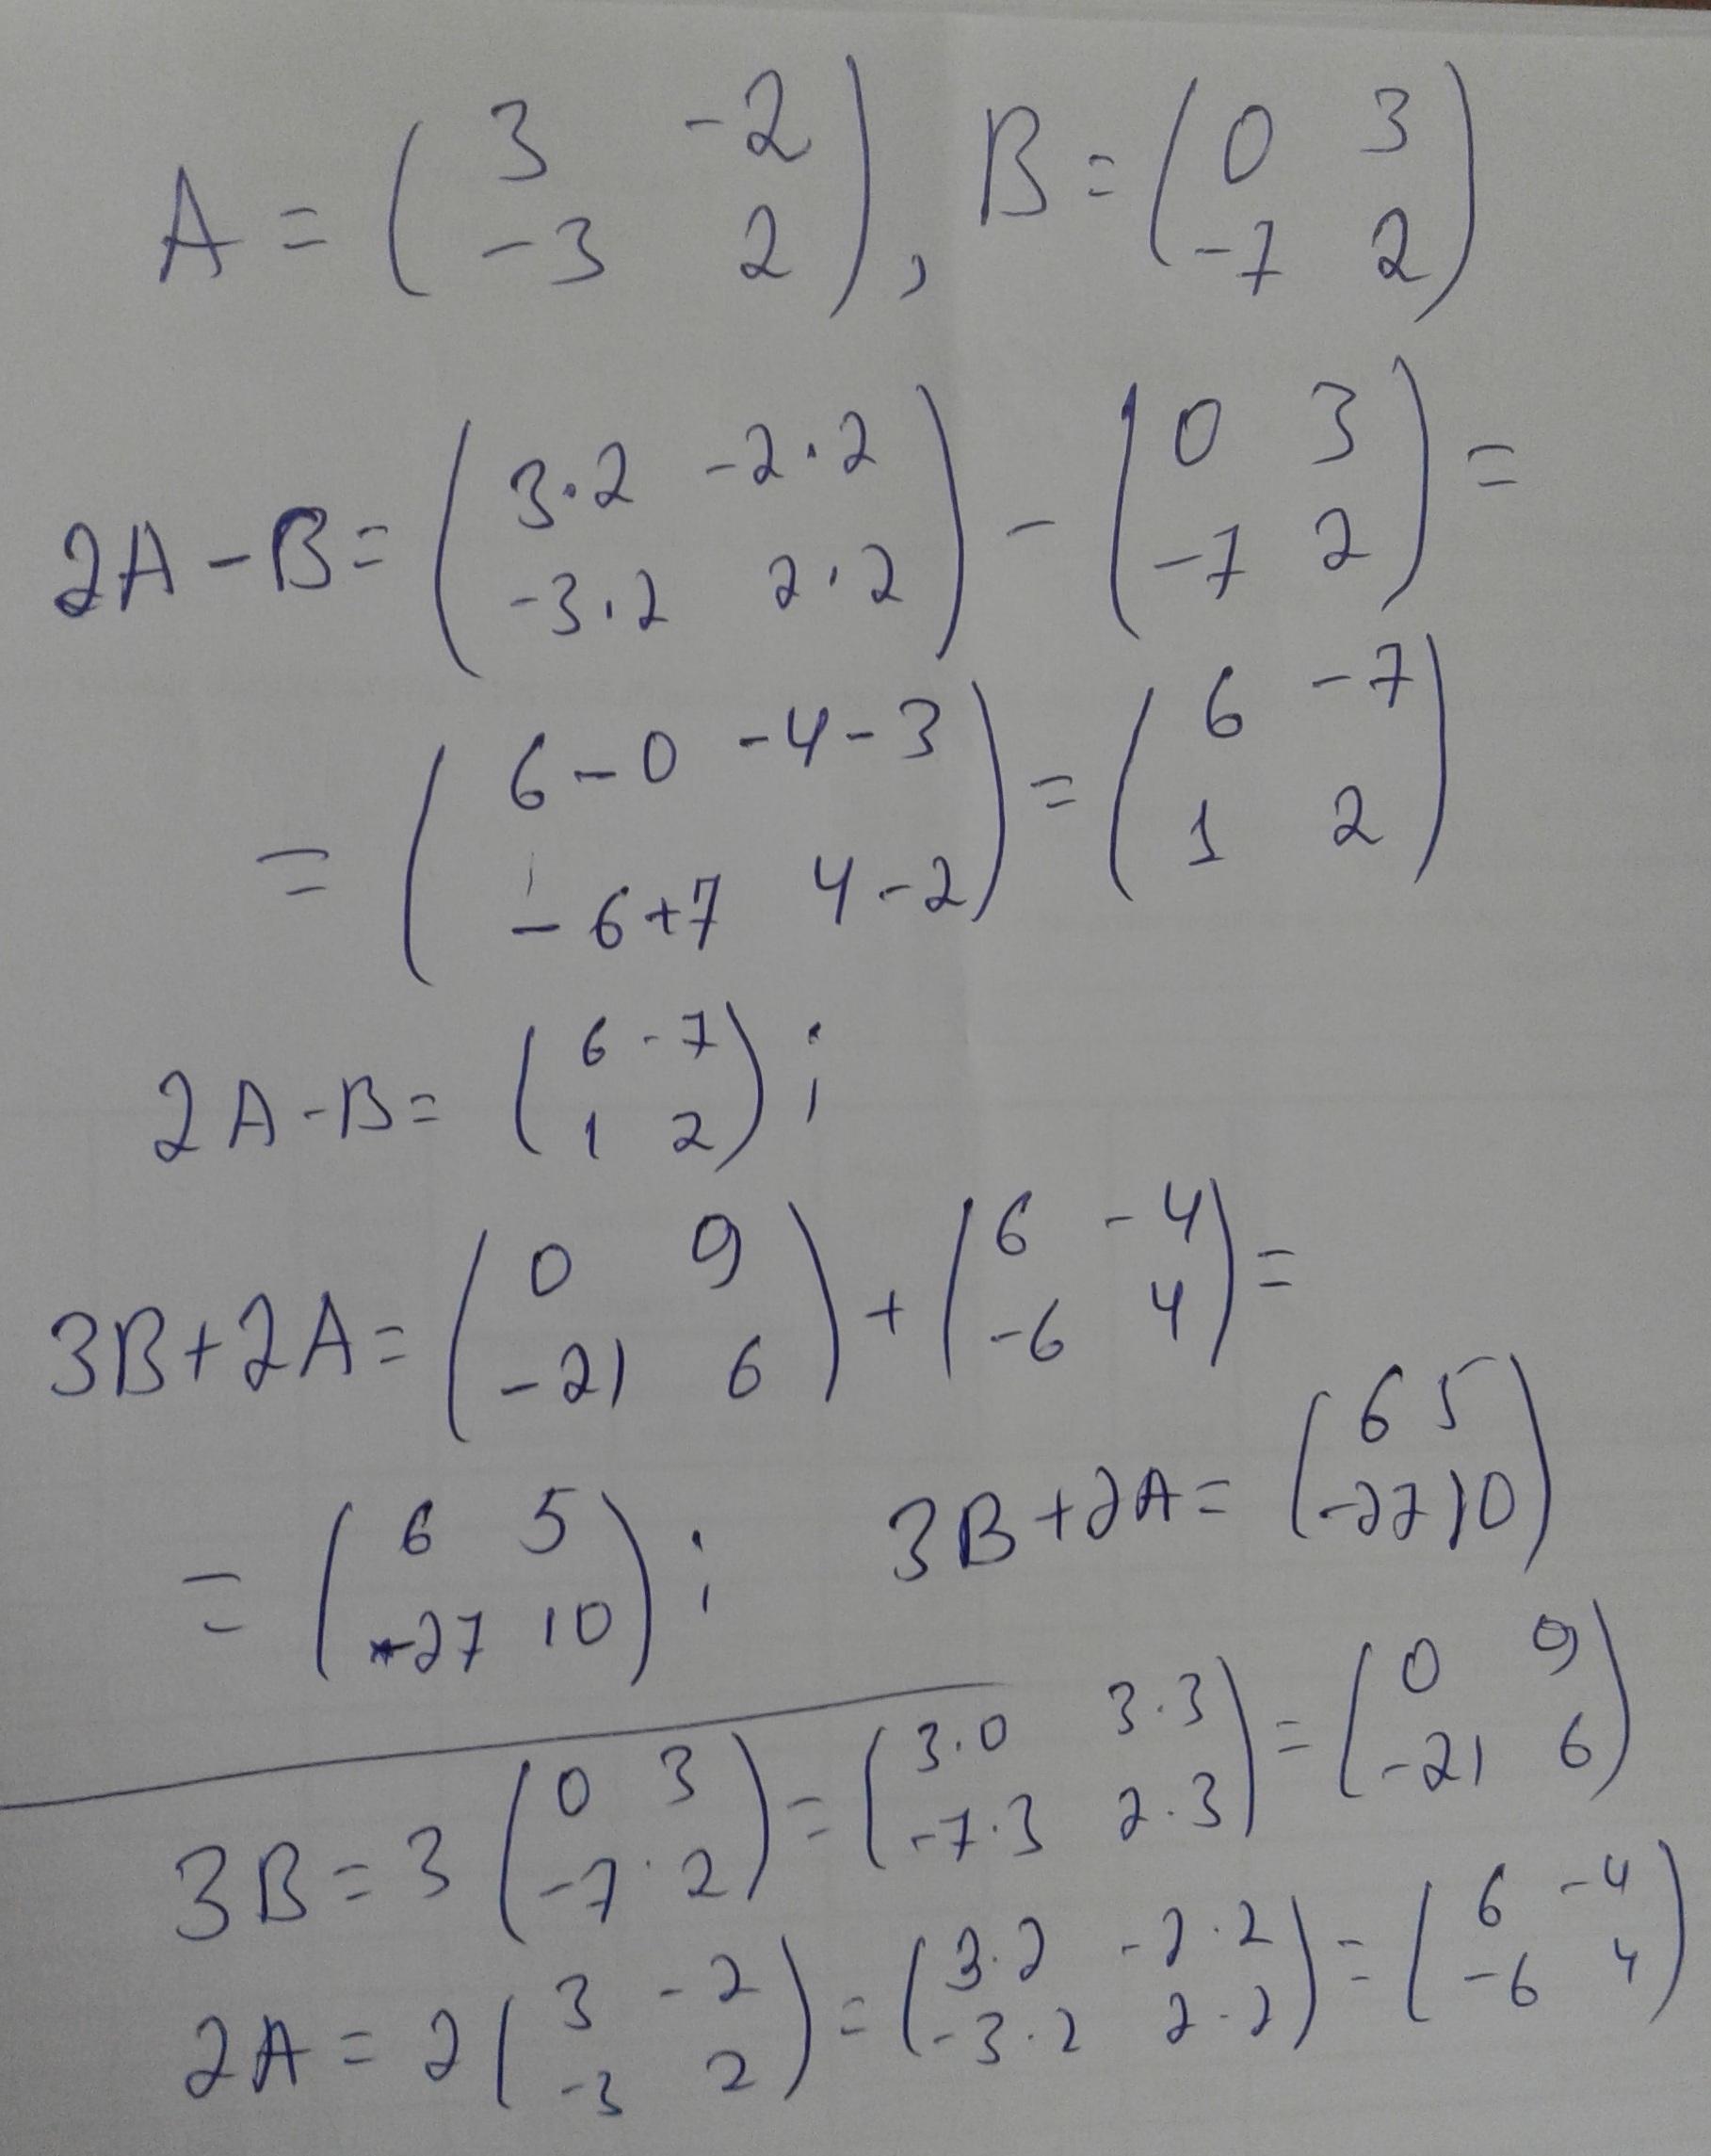 A = ( 3 -2 ; -3 2 ), B = ( 0 3 ; -7 2 )
2A - B = ( 3·2 -2·2 ; -3·2 2·2 ) - ( 0 3 ; -7 2 ) =
= ( 6-0 -4-3 ; -6+7 4-2 ) = ( 6 -7 ; 1 2 )
2A - B = ( 6 -7 ; 1 2 ) ;
3B + 2A = ( 0 9 ; -21 6 ) + ( 6 -4 ; -6 4 ) =
= ( 6 5 ; -27 10 ) ; 3B + 2A = ( 6 5 ; -27 10 )
3B = 3 ( 0 3 ; -7 2 ) = ( 3·0 3·3 ; -7·3 2·3 ) = ( 0 9 ; -21 6 )
2A = 2 ( 3 -2 ; -3 2 ) = ( 3·2 -2·2 ; -3·2 2·2 ) = ( 6 -4 ; -6 4 )